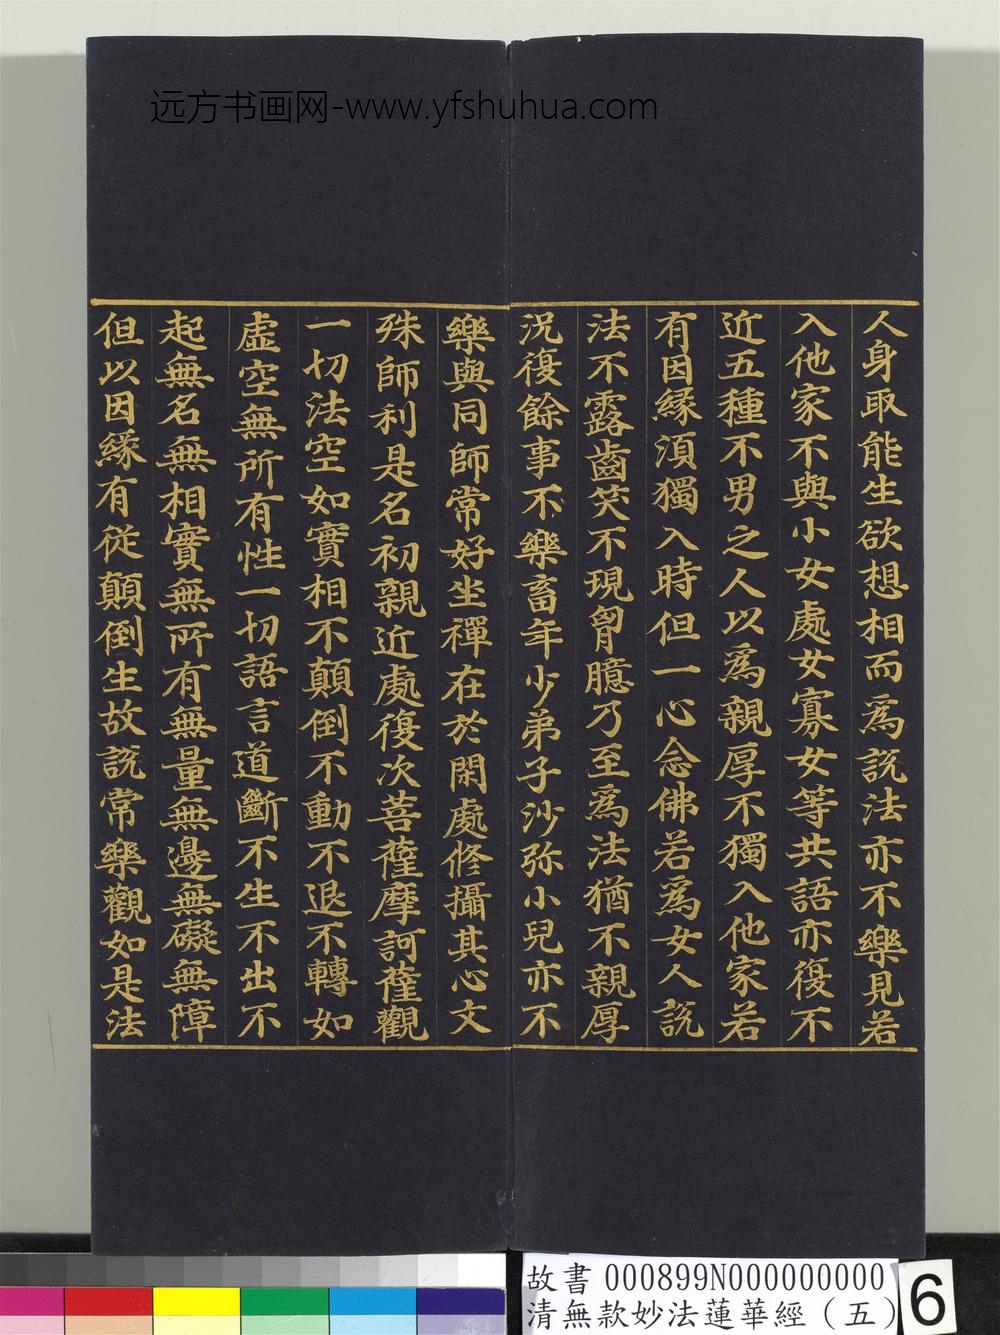 远方书画网-www.yfshuhua.com
人身取能生欲想相而為説法亦不樂見若
入他家不與小女處女寡女等共語亦復不
近五種不男之人以為親厚不獨入他家若
有因緣須獨入時但一心念佛若為女人説
法不露齒笑不現胷臆乃至為法猶不親厚
況復餘事不樂畜年少弟子沙弥小兒亦不
樂與同師常好坐禪在於閑處修攝其心文
殊師利是名初親近處復次菩薩摩訶薩觀
一切法空如實相不顛倒不動不退不轉如
虛空無所有性一切語言道斷不生不出不
起無名無相實無所有無量無邊無礙無障
但以因緣有從顛倒生故説常樂觀如是法
故書 000899N000000000
清無款妙法蓮華經（五）
6